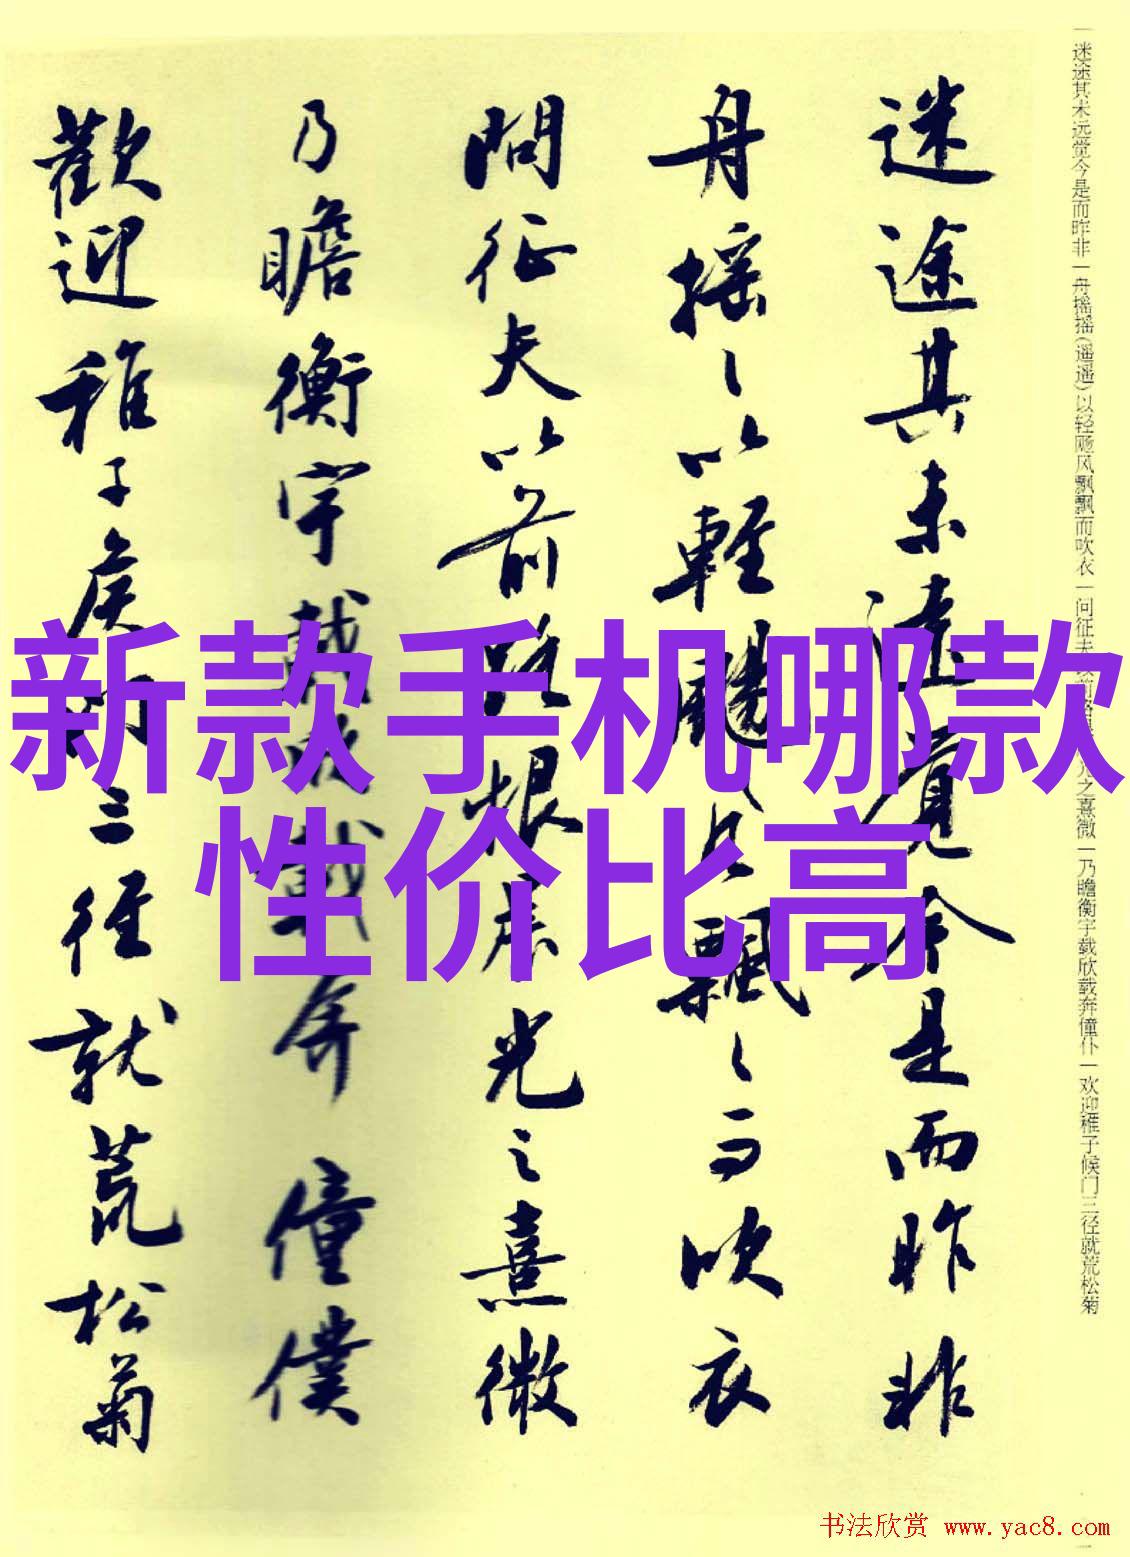 迷途其未遠覺今是而昨非
舟摇〻以輕颺風飄〻而吹衣
問征夫以前路恨晨光之熹微
乃瞻衡宇載欣載奔僮僕
歡迎稚子候門三徑就荒松菊
一迷途其未远觉今是而昨非一舟摇摇(遥遥)以轻飏风飘飘而吹衣一问征夫以前路恨晨光之熹微一乃瞻衡宇载欣载奔僮仆一欢迎稚子候门三径就荒松菊
新款手机哪款
性价比高
书法欣赏 www.yac8.com